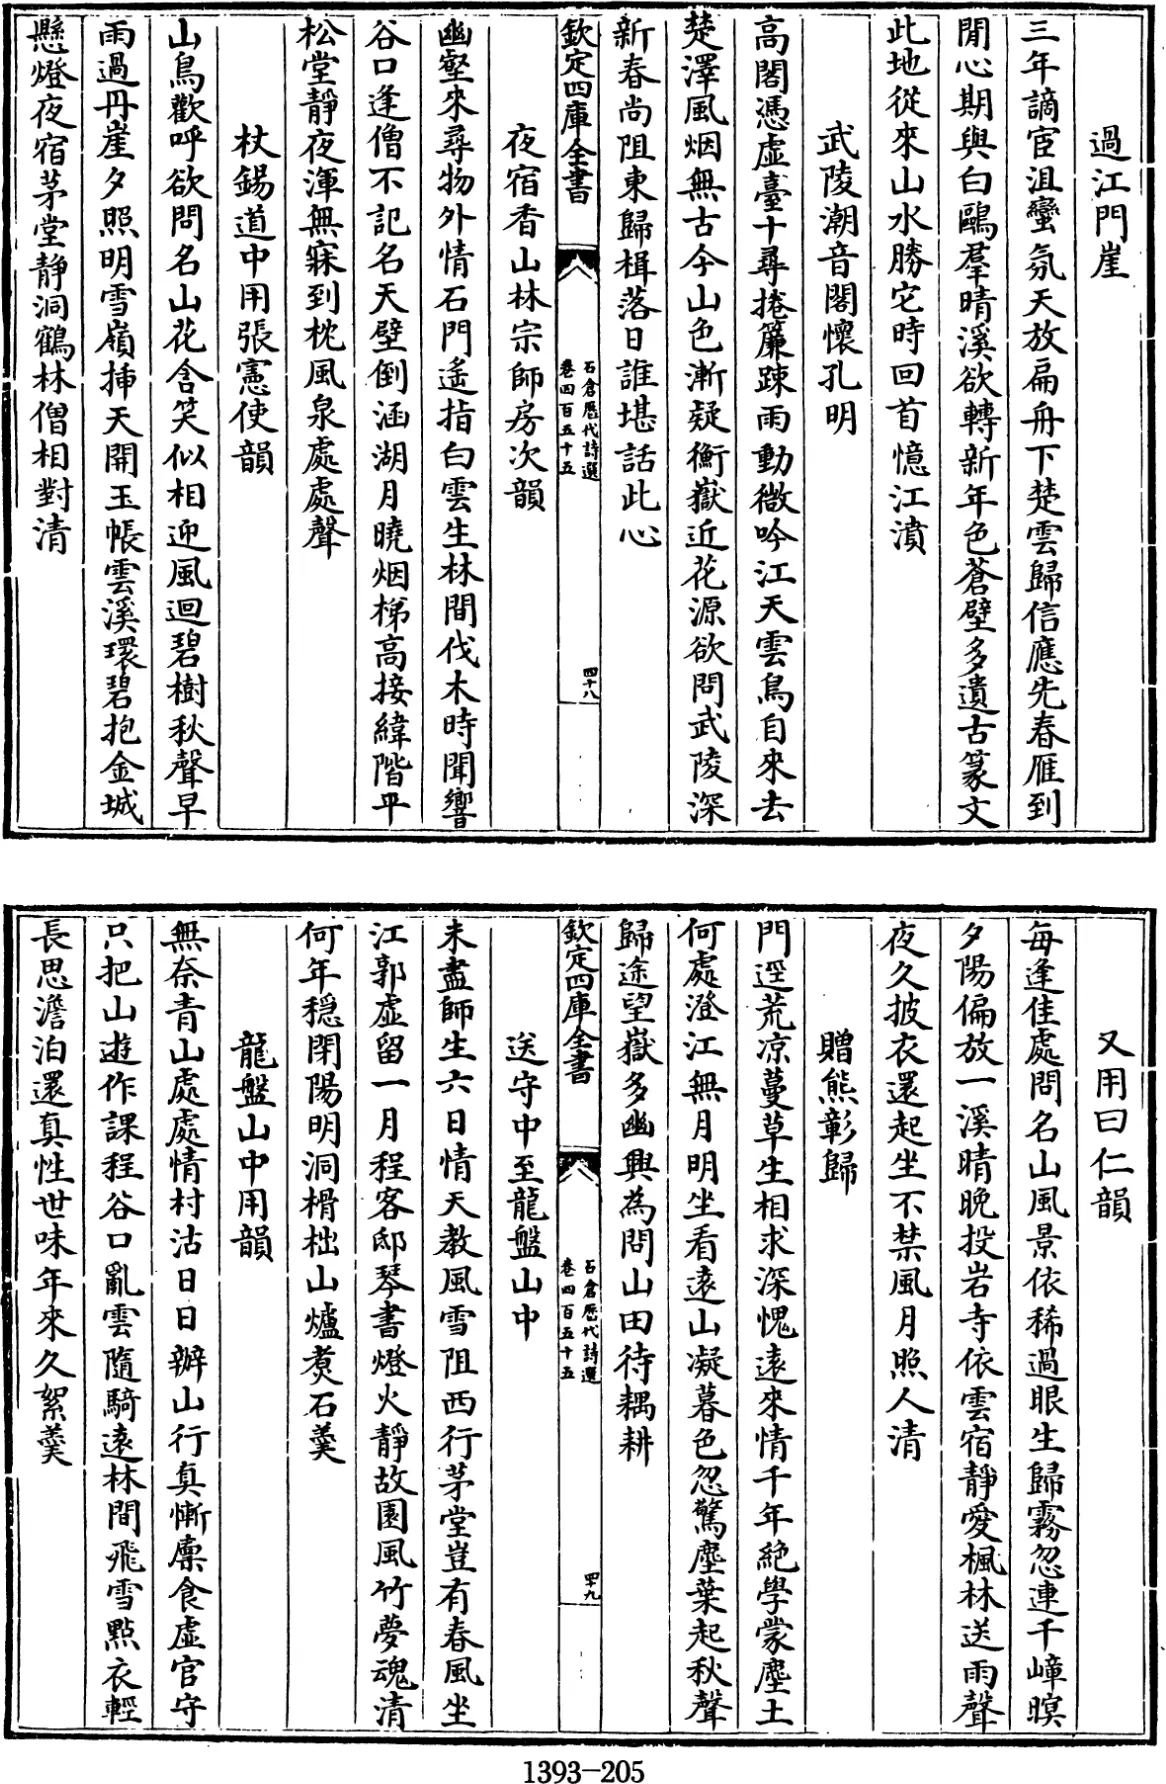 過江門崖
三年謫宦沮蠻氛天放扁舟下楚雲歸信應先春雁到
閒心期與白鷗羣晴溪欲轉新年色蒼壁多遺古篆文
此地從來山水勝它時回首憶江濆
武陵潮音閣懷孔明
高閣憑虛臺十尋捲簾踈雨動微吟江天雲鳥自來去
楚澤風烟無古今山色漸疑衡嶽近花源欲問武陵深
新春尚阻東歸楫落日誰堪話此心
欽定四庫全書
石倉歷代詩選
卷四百五十五
四十八
夜宿香山林宗師房次韻
幽壑來尋物外情石門遙指白雲生林間伐木時聞響
谷口逢僧不記名天壁倒涵湖月曉烟梯高接緯階平
松堂靜夜渾無寐到枕風泉處處聲
杖錫道中用張憲使韻
山鳥歡呼欲問名山花含笑似相迎風迴碧樹秋聲早
雨過丹崖夕照明雪嶺揷天開玉帳雲溪環碧抱金城
懸燈夜宿茅堂靜洞鶴林僧相對清
又用曰仁韻
每逢佳處問名山風景依稀過眼生歸霧忽連千嶂暝
夕陽偏放一溪晴晚投岩寺依雲宿靜愛楓林送雨聲
夜久披衣還起坐不禁風月照人清
贈熊彰歸
門逕荒凉蔓草生相求深愧遠來情千年絶學蒙塵土
何處澄江無月明坐看遠山凝暮色忽驚塵葉起秋聲
歸途望嶽多幽興為問山田待耦耕
欽定四庫全書
石倉歷代詩選
卷四百五十五
四十九
送守中至龍盤山中
未盡師生六日情天教風雪阻西行茅堂豈有春風坐
江郭虛留一月程客邸琴書燈火靜故園風竹夢魂清
何年穩閉陽明洞榾柮山爐煑石羹
龍盤山中用韻
無奈青山處處情村沽日日辦山行真慚廪食虛官守
只把山遊作課程谷口亂雲隨騎遠林間飛雪點衣輕
長思澹泊還真性世味年來久絮羹
1393-205